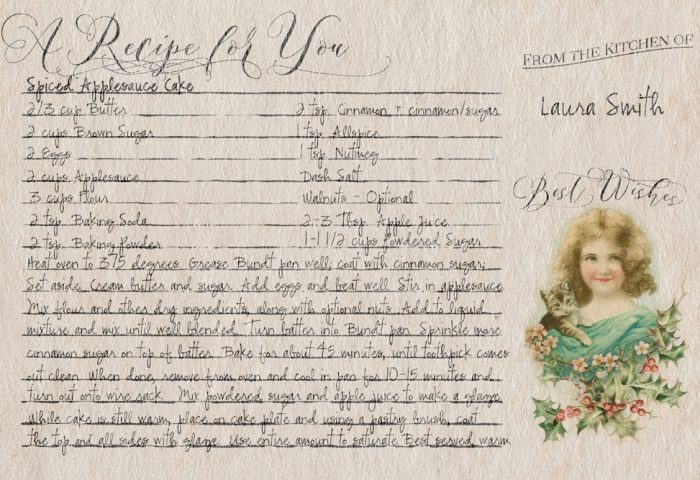 A Recipe for You
FROM THE KITCHEN OF
Laura Smith
Spiced Applesauce Cake
2/3 cup Butter 2 tsp. Cinnamon + cinnamon/sugar
2 cups Brown Sugar 1 tsp. Allspice
2 Eggs 1 tsp. Nutmeg
2 cups Applesauce Dash Salt
3 cups Flour Walnuts - Optional
2 tsp. Baking Soda 2-3 Tbsp. Apple Juice
2 tsp. Baking Powder 1-1 1/2 cups Powdered Sugar
Heat oven to 375 degrees. Grease Bundt pan well; coat with cinnamon sugar;
Set aside. Cream butter and sugar. Add eggs and beat well. Stir in applesauce.
Mix flour and other dry ingredients, along with optional nuts. Add to liquid
mixture and mix until well blended. Turn batter into Bundt pan. Sprinkle more
cinnamon sugar on top of batter. Bake for about 45 minutes, until toothpick comes
out clean. When done, remove from oven and cool in pan for 10-15 minutes and
turn out onto wire rack. Mix powdered sugar and apple juice to make a glaze.
While cake is still warm, place on cake plate and using a pastry brush, coat
the top and all sides with glaze. Use entire amount to saturate. Best served warm.
Best Wishes